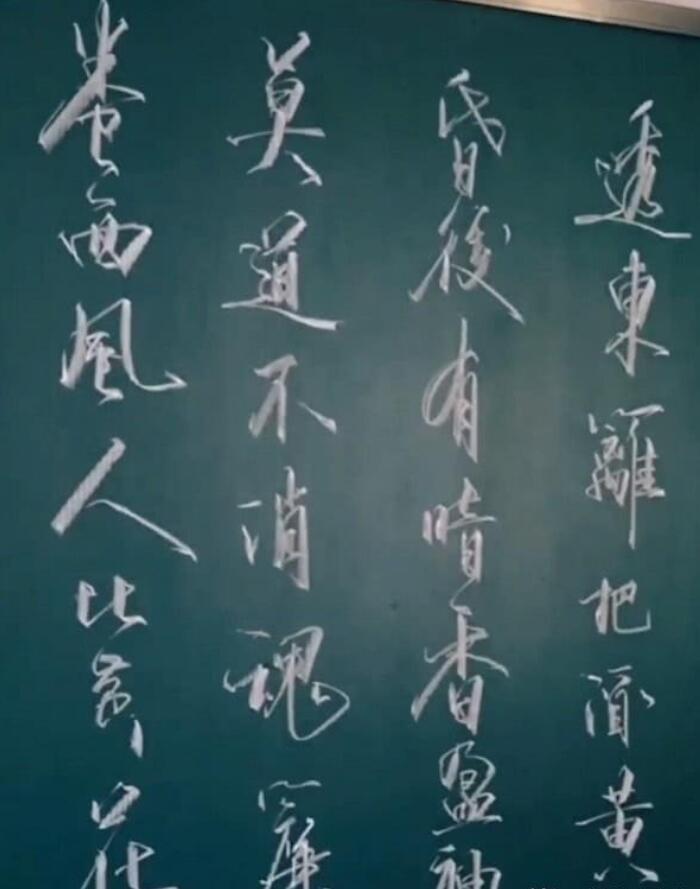 透東籬把酒黄
昏後有暗香盈袖
莫道不消魂簾
卷西風人比黄花